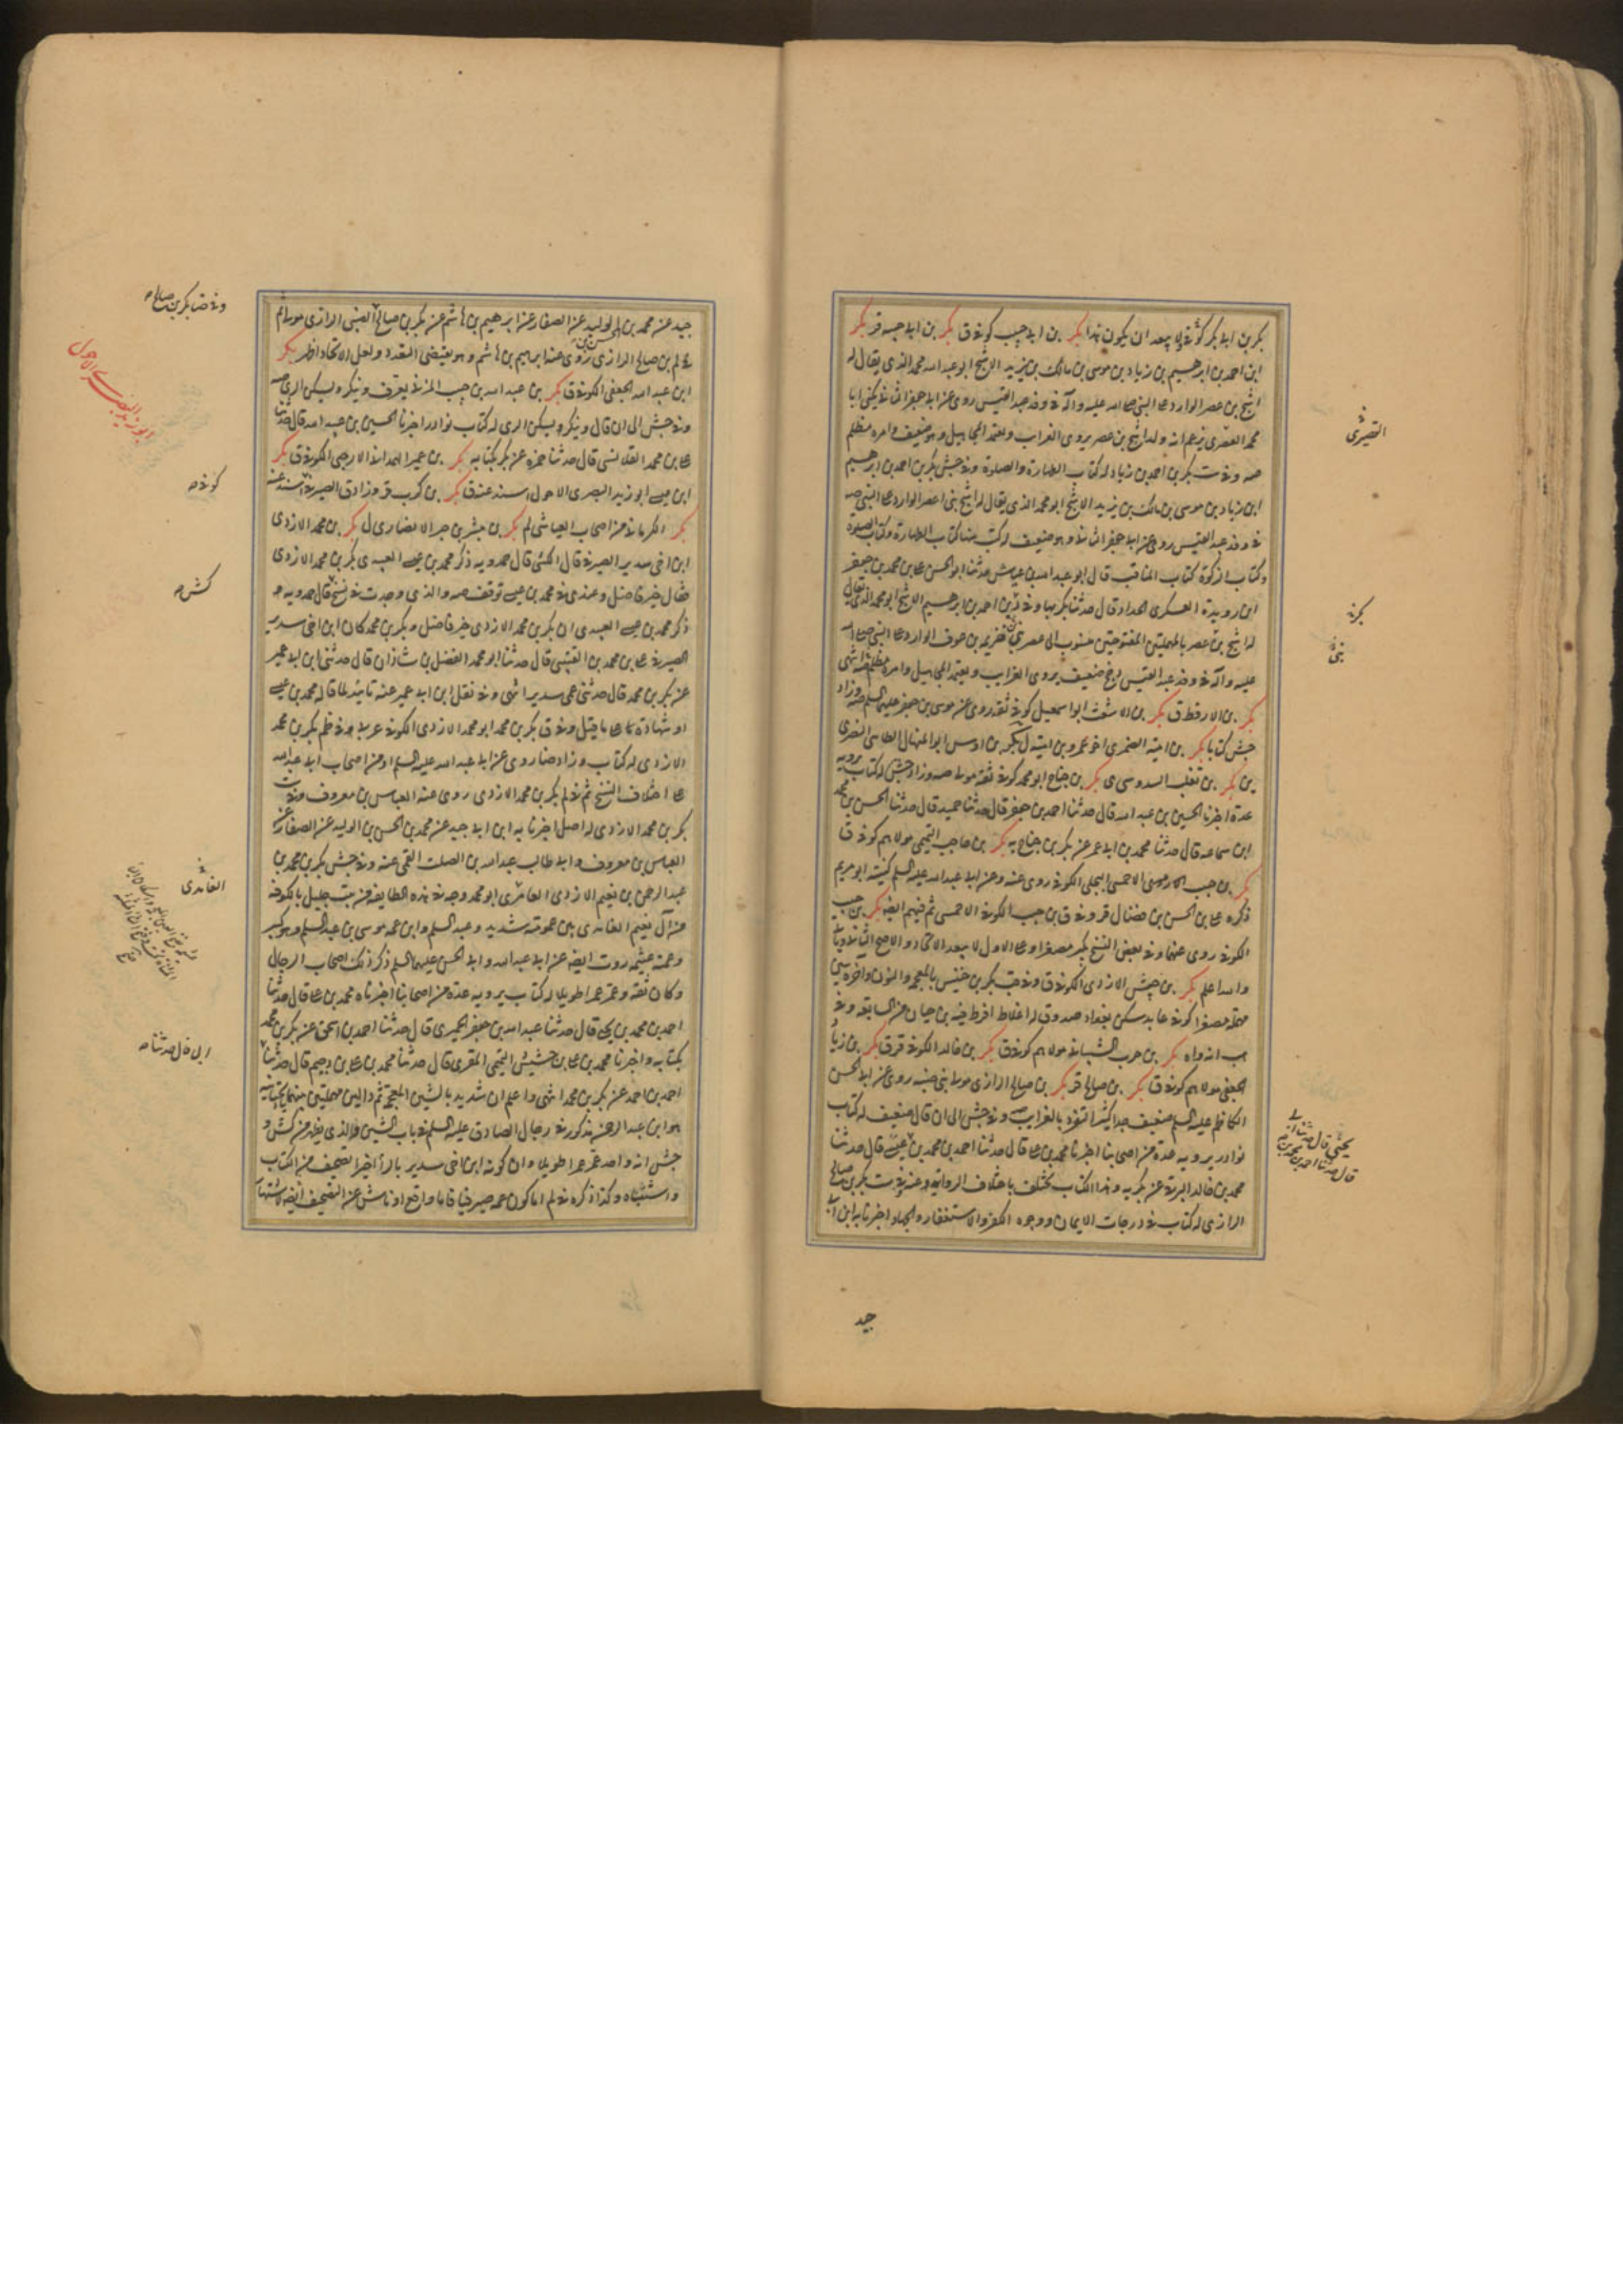 بكر بن ابي بكر كوفي ولا يبعد ان يكون هذا بكر بن ابي حبيب كوفي ق بكر بن ابي حبيبه قر بكر
ابن احمد بن ابرهيم بن زياد بن موسى بن مالك بن يزيد الاشج ابو عبد الله محمد الذي يقال له
اشج بن عصر الوارد على النبي صلى الله عليه وآله في وفد عبد القيس روى عن ابي جعفر الثاني يكنى ابا
محمد العصري يزعم انه ولد اشج بن عصر يروي الغراب ويعتمد المجاهيل وهو ضعيف وامره مظلم
صه وفي ست بكر بن احمد بن زياد له كتاب الطهارة والصلوة وفي جش بكر بن احمد بن ابرهيم
ابن زياد بن موسى بن مالك بن يزيد الاشج ابو محمد الذي يقال له اشج بني اعصر الوارد على النبي صه
في وفد عبد القيس روى عن ابي جعفر الثاني وهو ضعيف له كتب منها كتاب الطهارة وكتاب الصلوة
وكتاب الزكوة كتاب المناقب قال ابو عبد الله بن عياش حدثنا ابو الحسن علي بن محمد بن جعفر
ابن رويدة العسكري الحداد قال حدثنا بكر بها وفي بن احمد بن ابرهيم الاشج ابو محمد الذي يقال
له اشج بن عصر بالمهملتين المفتوحتين منسوب الى عصر بن خزيم بن عوف الوارد على النبي صلى الله
عليه وآله في وفد عبد القيس ضعيف يروي الغرايب ويعتمد المجاهيل وامره مظلم انتهى
بكر بن الارقط ق بكر بن الاشعث ابو اسمعيل كوفي ثقة روى عن موسى بن جعفر عليهما السلم صه وزاد
جش كتابا بكر بن امية الضمري اخو عمرو بن امية ل بكر بن اوس ابو المنهال الطائي البصري
ين بكر بن تغلب السدوسي ي بكر بن جناح ابو محمد كوفي ثقة مولى صه وزاد جش له كتاب يرويه
عدة اخبرنا الحسين بن عبد الله قال حدثنا احمد بن جعفر قال حدثنا حميد قال حدثنا الحسن بن محمد
ابن سماعه قال حدثنا محمد بن ابي عمر عن بكر بن جناح به بكر بن حاجب التيمي مولاهم كوفي ق
بكر بن حبيب الاحمسي البجلي الكوفي روى عنه وعن ابي عبد الله عليه السلم كنيته ابو مريم
ذكره علي بن الحسن بن فضال قر وفي ق بن حبيب الكوفي الاحمسي ثم فيهم ايضا بكر بن حبيب
الكوفي روى عنهما وفي بعض النسخ بكير مصغرا وعلى الاول لا يبعد الاتحاد والاصح
والله اعلم بكر بن حبيش الازدي الكوفي ق وفي قب بكر بن خنيس بالمعجمة والنون واخره سين
مهملة مصغرا كوفي عابد سكن بغداد صدوق له اغلاط افرط فيه بن حيان من السابعة
بكر بن حرب الشيباني مولاهم كوفي ق بكر بن خالد الكوفي قر ق بكر بن زياد
الجعفي مولاهم كوفي ق بكر بن صالح قر بكر بن صالح الرازي مولى بني ضبة روى عن ابي الحسن
الكاظم عليه السلم ضعيف جدا كثير التفرد بالغرايب صه وفي جش الى ان قال ضعيف له كتاب
نوادر يرويه عدة من اصحابنا اخبرنا محمد بن علي قال حدثنا احمد بن محمد بن يحيى قال حدثنا
محمد بن خالد البرقي عن بكر به وهذا الكتاب يختلف باختلاف الرواية وفي ست بكر بن صالح
الرازي له كتاب في درجات الايمان ووجوه الكفر والاستغفار والجهاد اخبرنا به ابن ابي
جيد
القيصري
بكر
جيد عن محمد بن الحسن بن الوليد عن الصفار عن ابرهيم بن هاشم عن بكر بن صالح الضبي الرازي مولى ثم
في لم بن صالح الرازي روى عنه ابراهيم بن هاشم وهو يقتضي التعدد ولعل الاتحاد اظهر بكر
ابن عبد الله الجعفي الكوفي ق بكر بن عبد الله بن حبيب المزني يعرف وينكر يسكن الري صه
وفي جش الى ان قال وينكر يسكن الري له كتاب نوادر اخبرنا الحسين بن عبيد الله قال حدثنا
علي بن محمد القلانسي قال حدثنا حمزه عن بكر بكتابه بكر بن عمير الهمداني الارحبي الكوفي ق بكر
ابن عيسى ابو زيد البصري الاحول اسند عنه ق بكر بن كرب قر وزاد ق الصيرفي اسند عنه
بكر الكرماني من اصحاب العياشي لم بكر بن مبشر بن جبر الانصاري ل بكر بن محمد الازدي
ابن اخي سدير الصيرفي قال الكشي قال حمدويه ذكر محمد بن عيسى العبيدي بكر بن محمد الازدي
فقال خير فاضل وعندي في محمد بن عيسى توقف صه والذي وجدت في نسخ قال حمدويه
ذكر محمد بن عيسى العبيدي ان بكر بن محمد الازدي خير فاضل وبكر بن محمد كان ابن اخي سدير
الصيرفي علي بن محمد بن القتيبي قال حدثنا ابو محمد الفضل بن شاذان قال حدثني ابن ابي عمير
عن بكر بن محمد قال حدثني عمي سدير انتهى وفي نقل ابن ابي عمير عنه تاييد لما قاله محمد بن عيسى
او شهادة على ما قيل وفي ق بكر بن محمد ابو محمد الازدي الكوفي عربي وفي ظم بكر بن محمد
الازدي له كتاب وزاد ضا روى عن ابي عبد الله عليه السلم او من اصحاب ابي عبد الله
على اختلاف النسخ ثم في لم بكر بن محمد الازدي روى عنه العباس بن معروف وفي ست
بكر بن محمد الازدي له اصل اخبرنا به ابن ابي جيد عن محمد بن الحسن بن الوليد عن الصفار عن
العباس بن معروف وابي طالب عبد الله بن الصلت القمي عنه وفي جش بكر بن محمد بن
عبد الرحمن بن نعيم الازدي الغامدي ابو محمد وجه في هذه الطايفة من بيت جليل بالكوفة
من آل نعيم الغامدي بين عمومته شديد وعبد السلم وابن عمه موسى بن عبد السلم وهو كبير
وعمته غنيمه روت ايضا عن ابي عبد الله وابي الحسن عليهما السلم ذكر ذلك اصحاب الرجال
وكان ثقة وعمر عمرا طويلا له كتاب يرويه عدة من اصحابنا اخبرناه محمد بن علي قال حدثنا
احمد بن محمد بن يحيى قال حدثنا عبد الله بن جعفر الحميري قال حدثنا احمد بن اسحق عن بكر بن محمد
بكتابه واخبرنا محمد بن علي بن خشيش التميمي المقري قال حدثنا محمد بن علي بن دحيم قال حدثنا
احمد بن احمد عن بكر بن محمد انتهى واعلم ان شديد بالشين المعجمة ثم دالين مهملتين بينهما
هو ابن عبد الرحمن مذكور في رجال الصادق عليه السلم في باب الشين فالذي يظهر من كش و
جش انه واحد عمر عمرا طويلا وان كونه ابن اخي سدير بالراء اخيرا تصحيف من الكتاب
واشتباه وكذا ذكره في لم اما كون عمه صيرفيا فاما واقع او ناش عن التصحيف ايضا
وفي ضا بكر بن صالح صه
ابو زيد البصري الاحول
كوفي صه
كش صه
الغامدي
ابي قال حدثنا صه